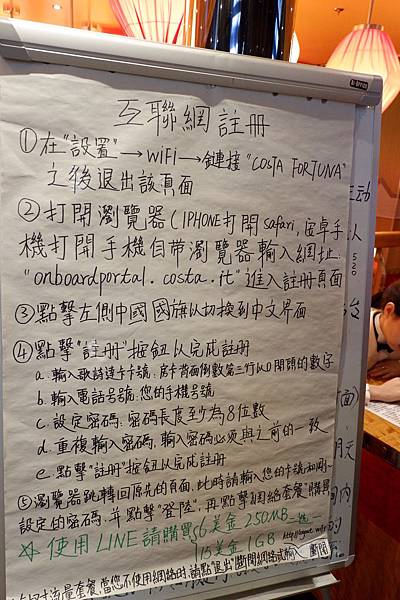 互聯網註冊
①在"設置"→WiFi→鏈接"COSTA FORTUNA"
之後退出該頁面
②打開瀏覽器(IPHONE打開safari,安卓手
機打開手機自帶瀏覽器輸入網址:
"onboardportal.costa.it"進入註冊頁面
③點擊左側中國國旗以切換到中文界面
④點擊"註冊"按鈕以完成註冊
a. 輸入歌詩達卡卡號:房卡背面倒數第三行以0開頭的數字
b. 輸入電話号號:您的手機号號
c. 設定密碼:密碼長度至少為8位數
d. 重複輸入密碼,輸入密碼必須與之前的一致
e. 點擊"註冊"按鈕以完成註冊
⑤瀏覽器跳轉回原先的頁面,此時請輸入您的卡號和剛
設定的密碼,并點擊"登陸",再點擊"網絡套餐"購買
使用LINE請購買56美金 250MB
115美金 1GB
流量套餐,當您不使用網絡時,請點"退出"斷開網絡或輸入